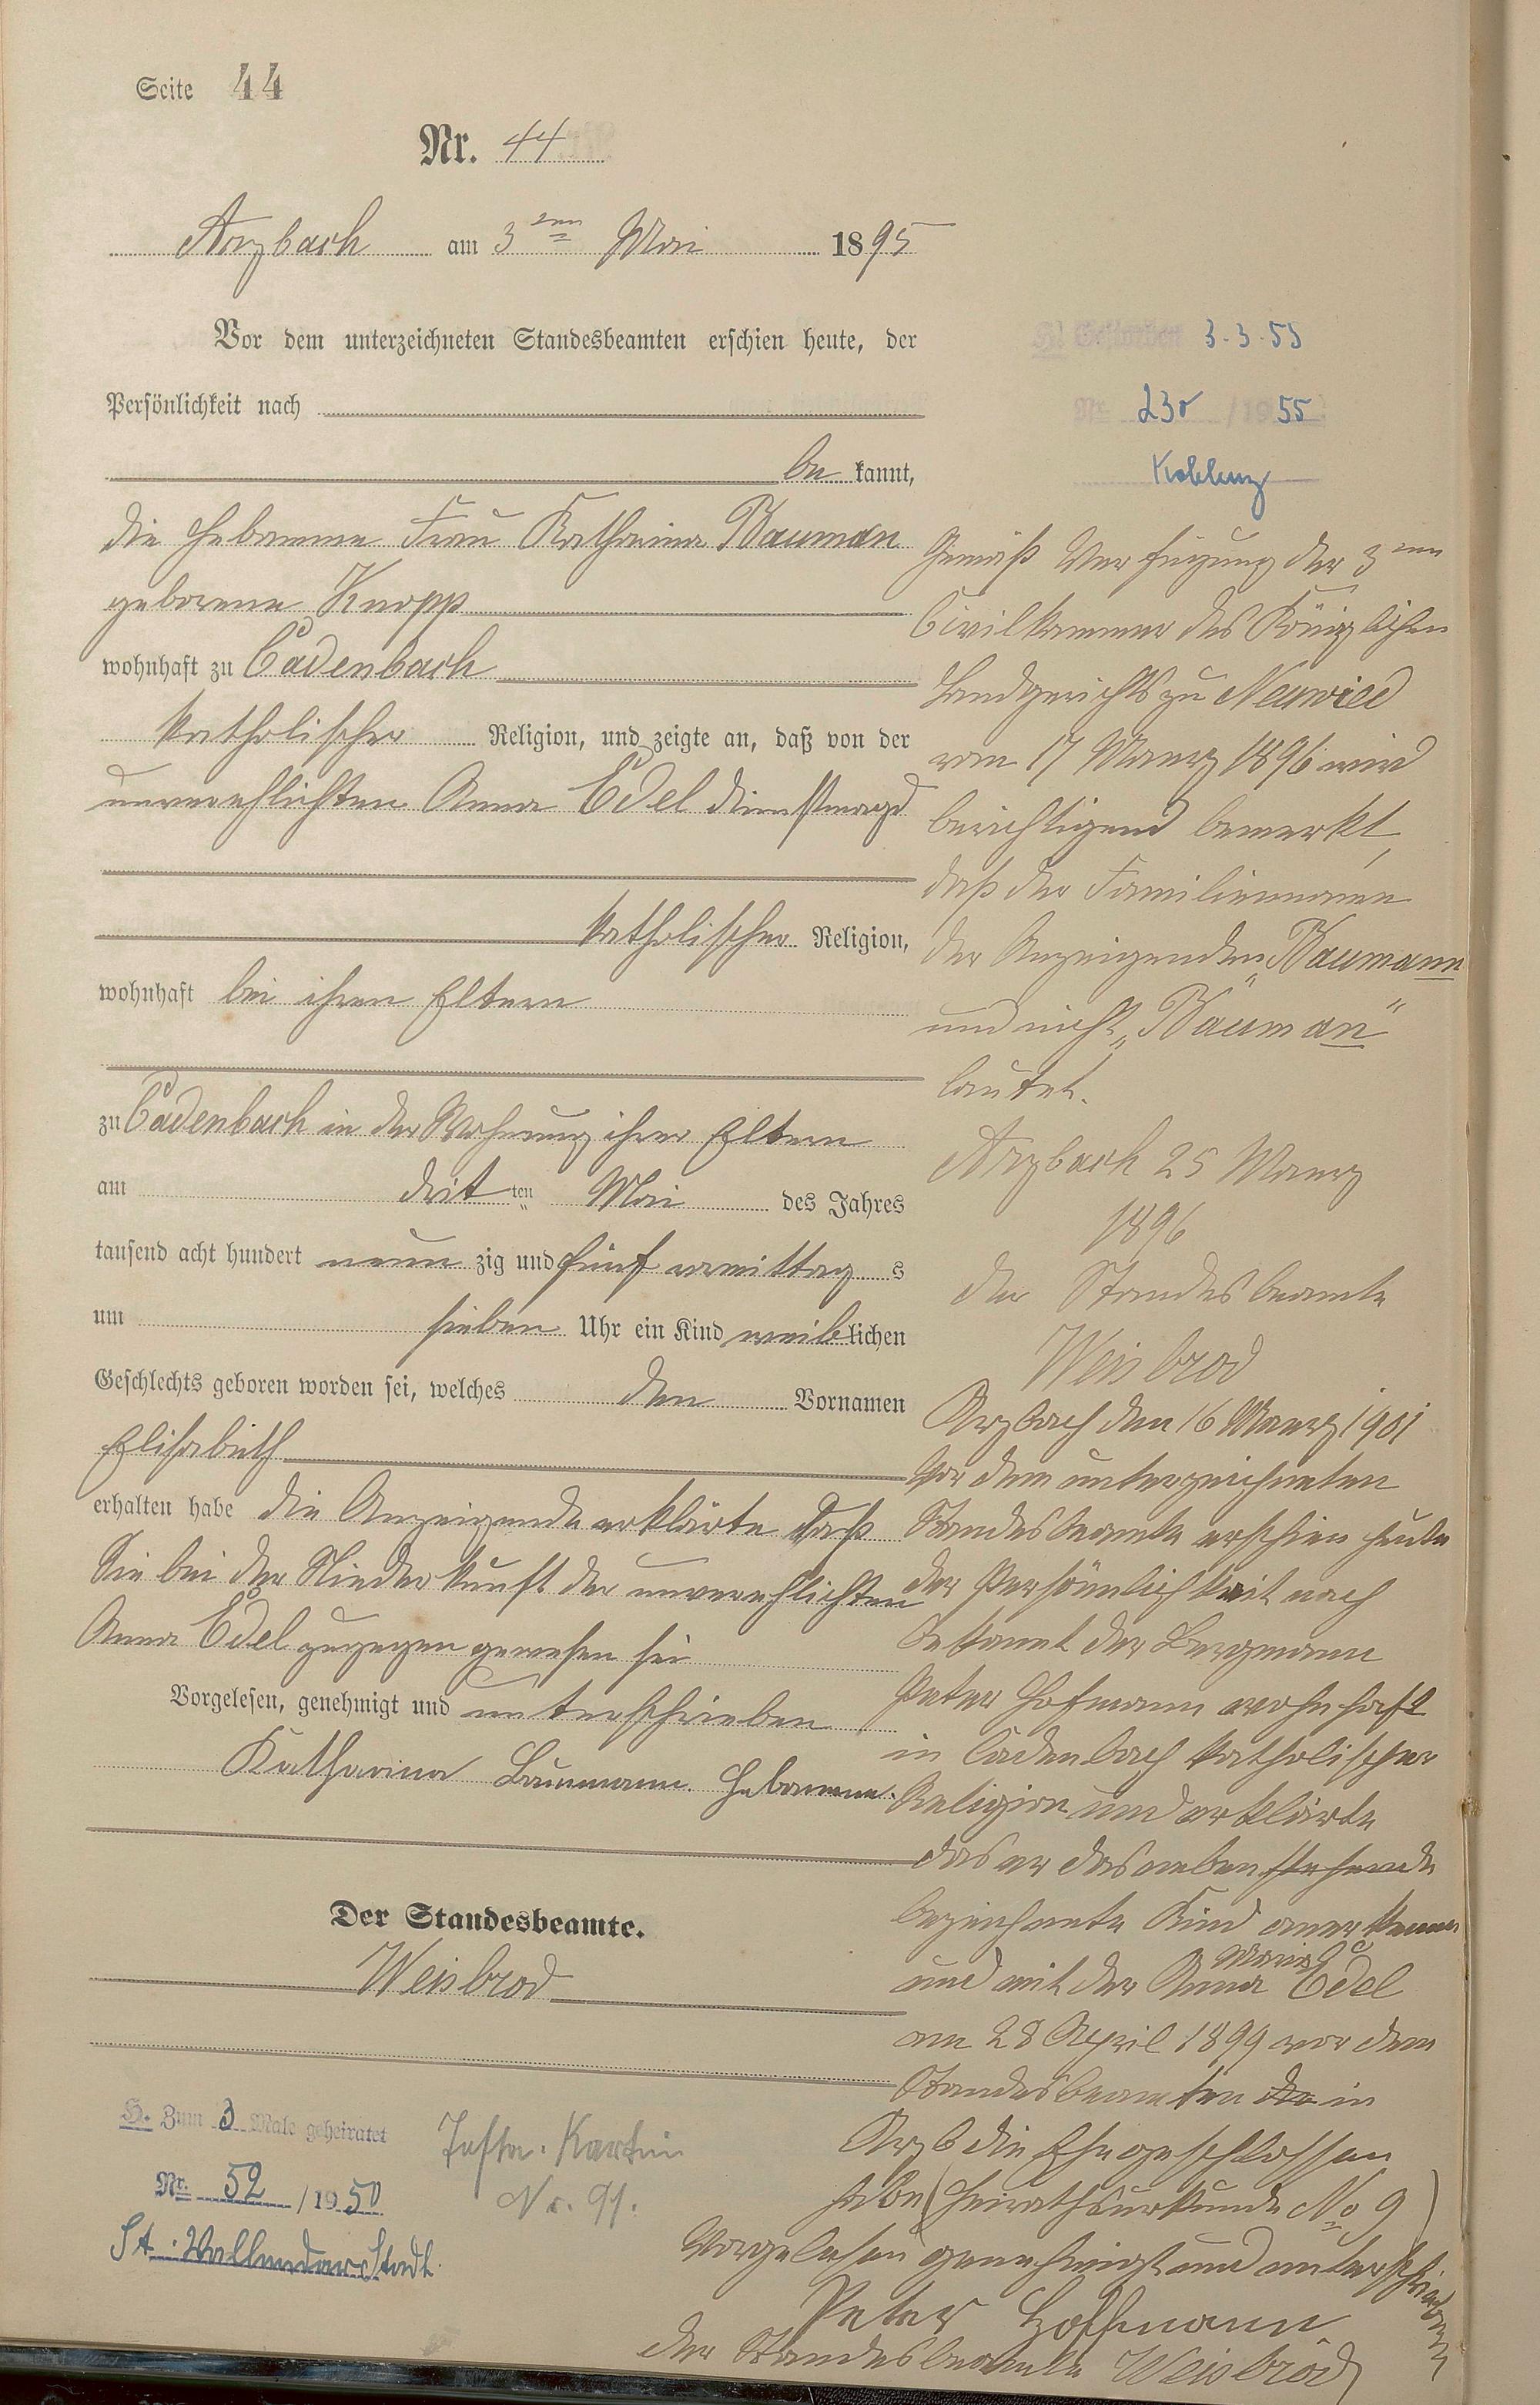 Seite 44
Nr. 44
Arzbach am 3ten Mai 1895
Vor dem unterzeichneten Standesbeamten erschien heute, der
Persönlichkeit nach
be kannt,
die Hebamme Frau Katharina Bauman
geborene Knopp
wohnhaft zu Cadenbach
katholischer Religion, und zeigte an, daß von der
unverehlichten Anna Edel Dienstmagd
katholischer Religion,
wohnhaft bei ihren Eltern
zu Cadenbach in der Wohnung ihrer Eltern
am drit ten Mai des Jahres
tausend acht hundert neun zig und fünf vormittag s
um sieben Uhr ein Kind weiblichen
Geschlechts geboren worden sei, welches den Vornamen
Elisabeth
erhalten habe die Anzeigende erklärte daß
Sie bei der Niederkunft der unverehlichten
Anna Edel zugegen gewesen sei
Vorgelesen, genehmigt und unterschrieben
Katharina Baumann Hebamme.
Der Standesbeamte.
Weisbrod
H. Zum 3 Male geheiratet
Nr. 52 / 1950
St. Vallendar Stadt
Nr. 91.
H. Gestorben 3.3.55
Nr. 230 / 1955
Koblenz
Gemäß Verfügung der 3ten
Civilkammer des Königlichen
Landgerichts zu Neuwied
vom 17 Maerz 1896 wird
berichtigend bemerkt,
daß der Familienname
der Anzeigenden „Baumann
und nicht „Bauman"
lautet.
Arzbach 25 Maerz
1896
der Standesbeamte
Weisbrod
Arzbach den 16 Maerz 1901
Vor dem unterzeichneten
Standesbeamte erschien heute
der Persönlichkeit nach
bekannt der Bergmann
Peter Hofmann wohnhaft
in Cadenbach katholischer
Religion und erklärte
das er das nebenstehende
bezeichnete Kind anerkenne
und mit der Anna Maria Edel
am 28 April 1899 vor dem
Standesbeamten in
Arzb die Ehe geschlossen
habe (Heirathsurkunde No 9)
Vorgelesen genehmigt und unterschrieben
Peter Hoffmann
der Standesbeamte Weisbrod